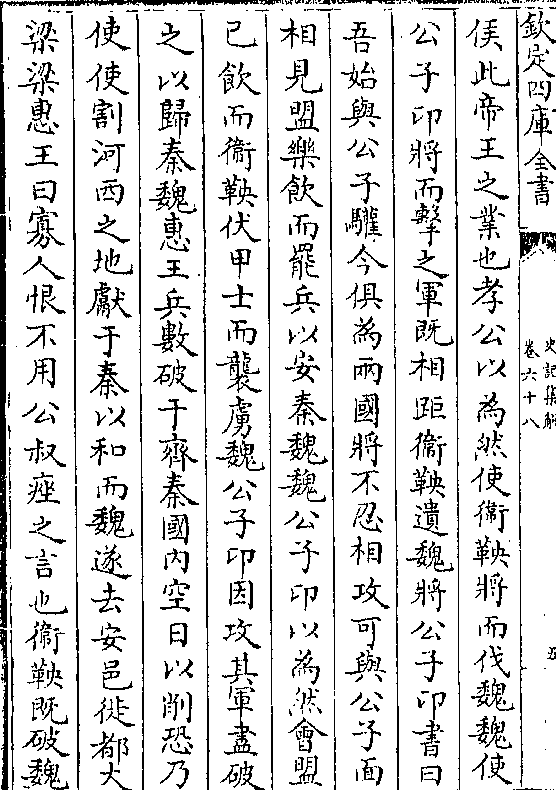 欽定四庫全書
史記集解
卷六十八
五
侯此帝王之業也孝公以為然使衞鞅將而伐魏魏使
公子卬將而擊之軍既相距衞鞅遺魏將公子卬書曰
吾始與公子驩今俱為兩國將不忍相攻可與公子面
相見盟樂飲而罷兵以安秦魏魏公子卬以為然會盟
已飲而衞鞅伏甲士而襲虜魏公子卬因攻其軍盡破
之以歸秦魏惠王兵數破于齊秦國内空日以削恐乃
使使割河西之地獻于秦以和而魏遂去安邑徙都大
梁梁惠王曰寡人恨不用公叔痤之言也衞鞅既破魏